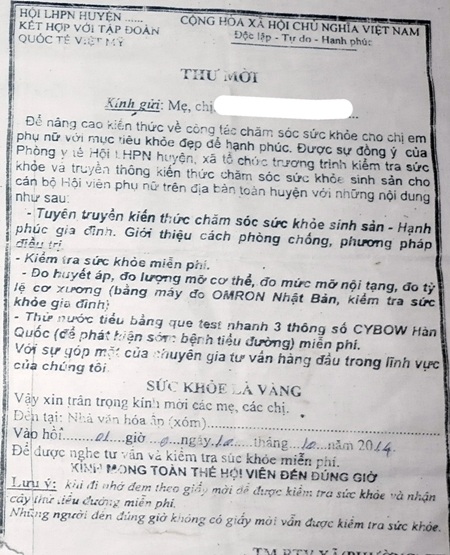 HỘI LHPN HUYỆN ......
KẾT HỢP VỚI TẬP ĐOÀN
QUỐC TẾ VIỆT MỸ
CỘNG HÒA XÃ HỘI CHỦ NGHĨA VIỆT NAM
Độc lập - Tự do - Hạnh phúc
THƯ MỜI
Kính gửi: Mẹ, chị
Để nâng cao kiến thức về công tác chăm sóc sức khỏe cho chị em
phụ nữ với mục tiêu khỏe đẹp để hạnh phúc. Được sự đồng ý của
Phòng y tế Hội LHPN huyện, xã tổ chức trương trình kiểm tra sức
khỏe và truyền thông kiến thức chăm sóc sức khỏe sinh sản cho
cán bộ Hội viên phụ nữ trên địa bàn toàn huyện với những nội dung
như sau:
- Tuyên truyền kiến thức chăm sóc sức khỏe sinh sản - Hạnh
phúc gia đình. Giới thiệu cách phòng chống, phương pháp
điều trị.
- Kiểm tra sức khỏe miễn phí.
- Đo huyết áp, đo lượng mỡ cơ thể, đo mức mỡ nội tạng, đo tỷ
lệ cơ xương (bằng máy đo OMRON Nhật Bản, kiểm tra sức
khỏe gia đình)
- Thử nước tiểu bằng que test nhanh 3 thông số CYBOW Hàn
Quốc (để phát hiện sớm bệnh tiểu đường) miễn phí.
Với sự góp mặt của chuyên gia tư vấn hàng đầu trong lĩnh vực
của chúng tôi.
SỨC KHỎE LÀ VÀNG
Vậy xin trân trọng kính mời các mẹ, các chị.
Đến tại: Nhà văn hóa ấp (xóm)
Vào hồi 01 giờ ngày 10 tháng 10 năm 2014
Để được nghe tư vấn và kiểm tra sức khỏe miễn phí.
KÍNH MONG TOÀN THỂ HỘI VIÊN ĐẾN ĐÚNG GIỜ
Lưu ý: khi đi nhớ đem theo giấy mời để được kiểm tra sức khỏe và nhận
cây thử tiểu đường miễn phí.
Những người đến đúng giờ không có giấy mời vẫn được kiểm tra sức khỏe.